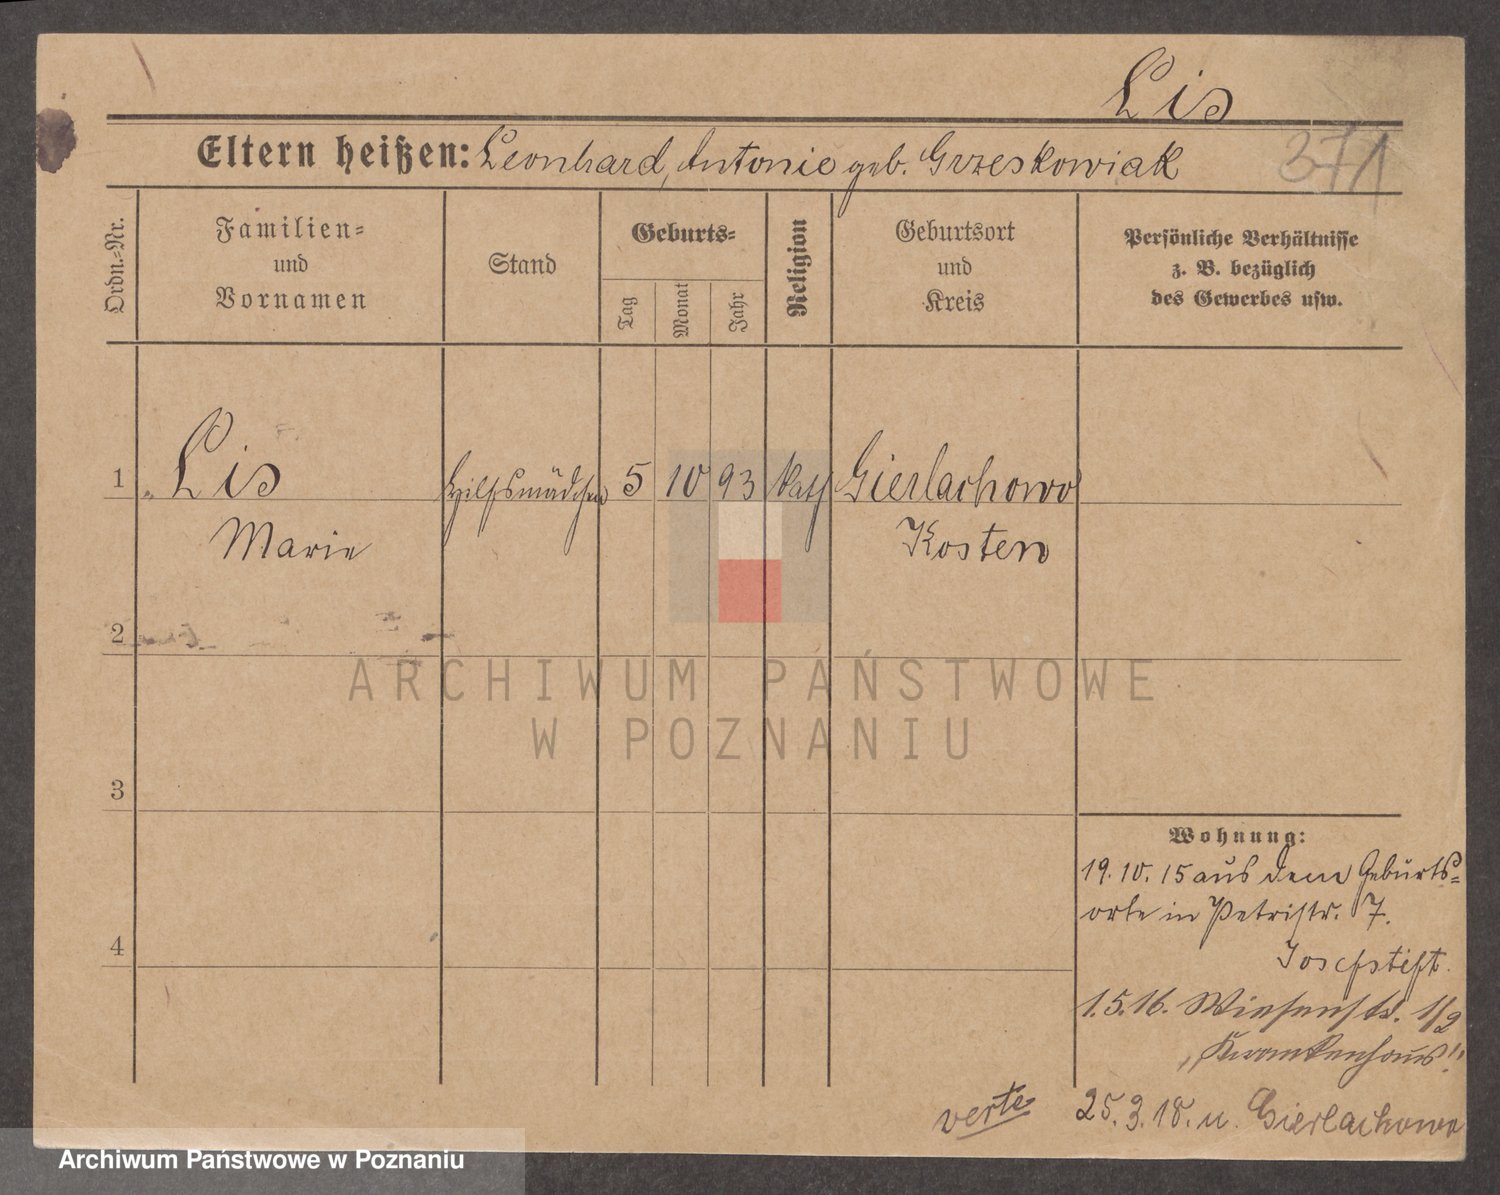 Lis
371
Eltern heißen: Leonhard, Antonie geb. Grzeskowiak
Ordn.-Nr.
Familien-
und
Vornamen
Stand
Geburts-
Tag
Monat
Jahr
Religion
Geburtsort
und
Kreis
Persönliche Verhältnisse
z. B. bezüglich
des Gewerbes usw.
1 Lis Hilfsmädchen 5 10 93 kath Gierlachowo
Marie Kosten
2
3
4
Wohnung:
19.10.15 aus dem Geburts-
orte in Petristr. 7.
Josefstift.
1.5.16. Wiesenstr. 1/2
"Krankenhaus"
25.3.18. n. Gierlachowo
verte
ARCHIWUM PAŃSTWOWE
W POZNANIU
Archiwum Państwowe w Poznaniu